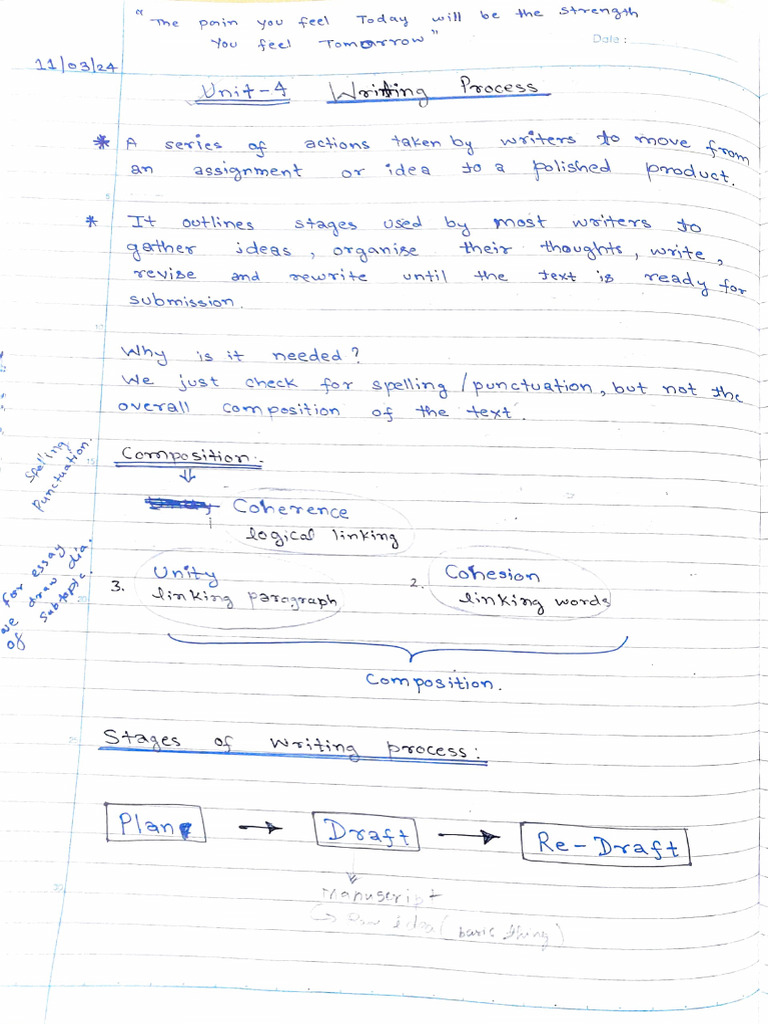 "The pain you feel Today will be the strength
You feel Tomorrow"
Date :
11/03/24
Unit-4 Writing Process
* A series of actions taken by writers to move from
an assignment or idea to a polished product.
* It outlines stages used by most writers to
gather ideas, organise their thoughts, write,
revise and rewrite until the text is ready for
submission.
Why is it needed?
We just check for spelling/punctuation, but not the
overall composition of the text.
Spelling
Punctuation.
Composition:-
1 Coherence
logical linking
for essay
we draw dia.
of subtopic.
3. Unity
linking paragraph
2. Cohesion
linking words
Composition.
Stages of writing process:
Plan → Draft → Re-Draft
Manuscript
idea (basic thing)